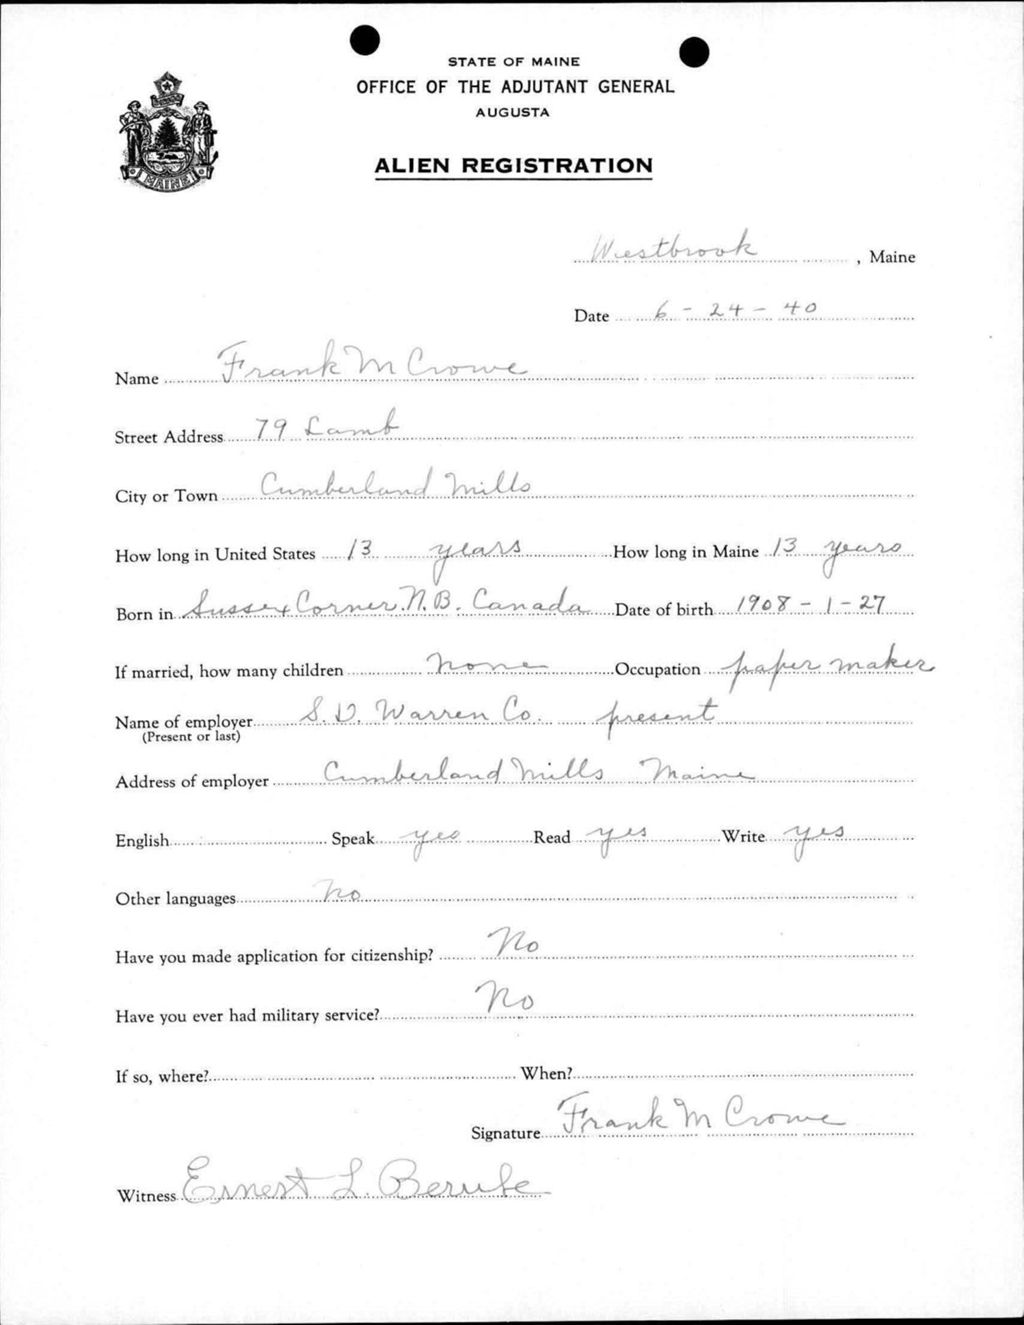 STATE OF MAINE
OFFICE OF THE ADJUTANT GENERAL
AUGUSTA
ALIEN REGISTRATION
MAINE
Westbrook, Maine
Date 6 - 24 - 40
Name Frank M Crowe
Street Address 79 Lamb
City or Town Cumberland Mills
How long in United States 13 years How long in Maine 13 years
Born in Sussex Corner N.B. Canada Date of birth 1908 - 1 - 27
If married, how many children none Occupation paper maker
Name of employer S. D. Warren Co. present
(Present or last)
Address of employer Cumberland Mills Maine
English Speak yes Read yes Write yes
Other languages no
Have you made application for citizenship? No
Have you ever had military service? No
If so, where? When?
Signature Frank M Crowe
Witness Ernest L Berube